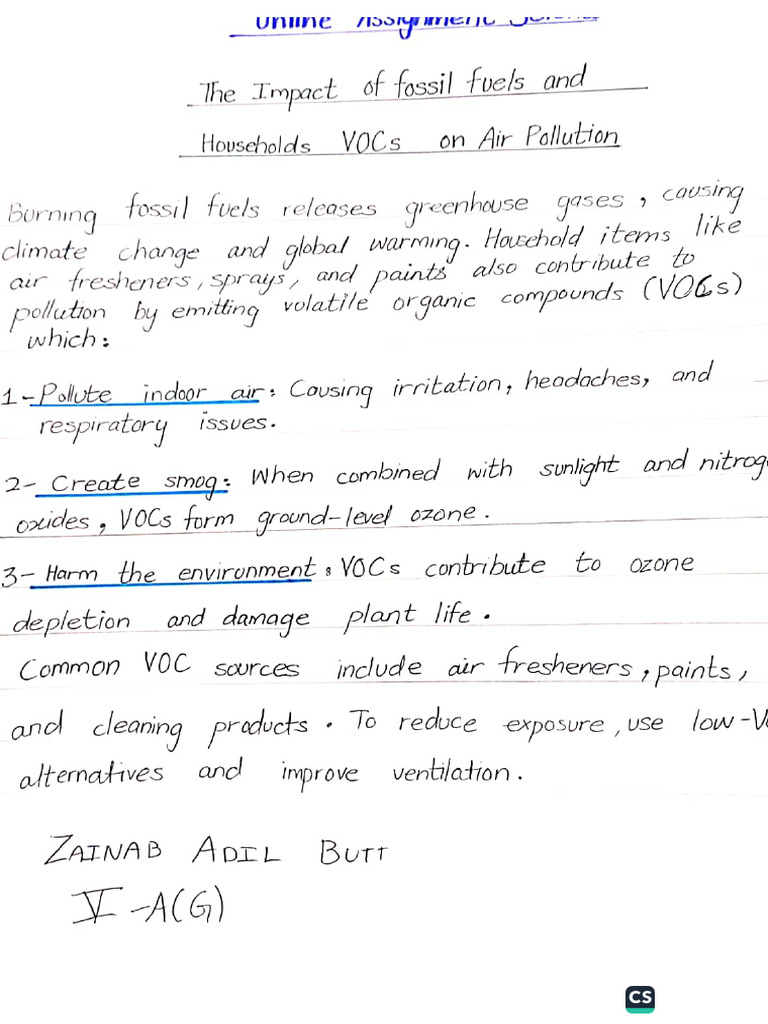 Online Assignment Science
The Impact of fossil fuels and
Households VOCs on Air Pollution
Burning fossil fuels releases greenhouse gases, causing
climate change and global warming. Household items like
air fresheners, sprays, and paints also contribute to
pollution by emitting volatile organic compounds (VOCs)
which:
1- Pollute indoor air: Causing irritation, headaches, and
respiratory issues.
2- Create smog: When combined with sunlight and nitrog
oxides, VOCs form ground-level ozone.
3- Harm the environment: VOCs contribute to ozone
depletion and damage plant life.
Common VOC sources include air fresheners, paints,
and cleaning products. To reduce exposure, use low-V
alternatives and improve ventilation.
ZAINAB ADIL BUTT
V-A(G)
CS